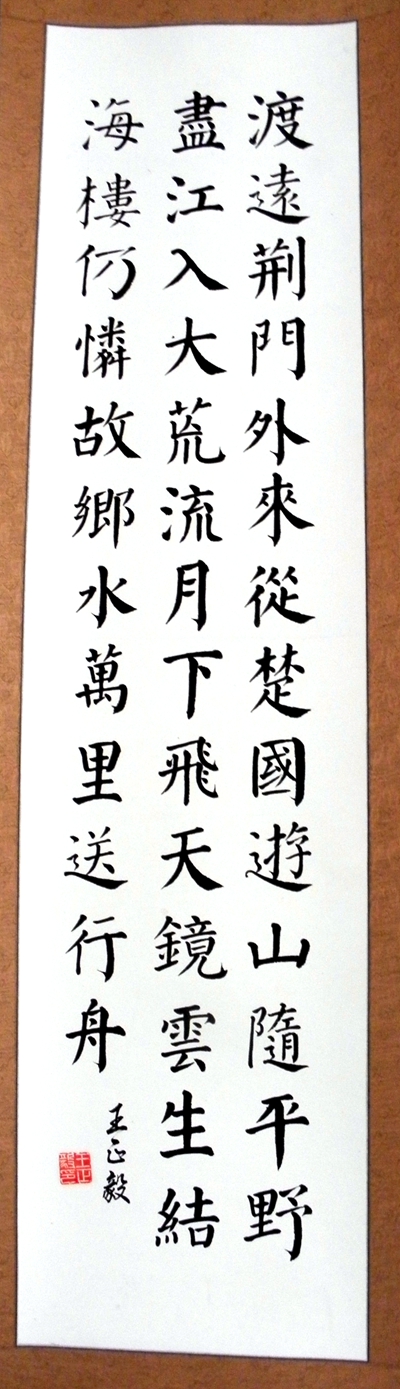 渡遠荆門外來從楚國遊山隨平野
盡江入大荒流月下飛天鏡雲生結
海樓仍憐故鄉水萬里送行舟
王正毅